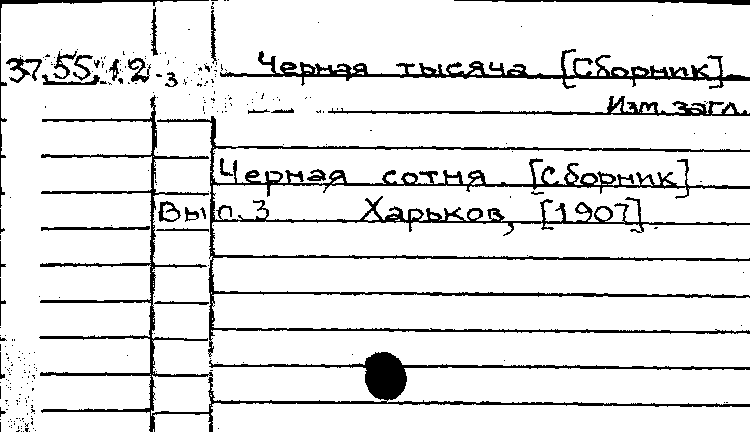 37.55.1.2-3 Черная тысяча. [Сборник]
Изм. загл.
Черная сотня. [Сборник]
Вып. 3 Харьков, [1907].